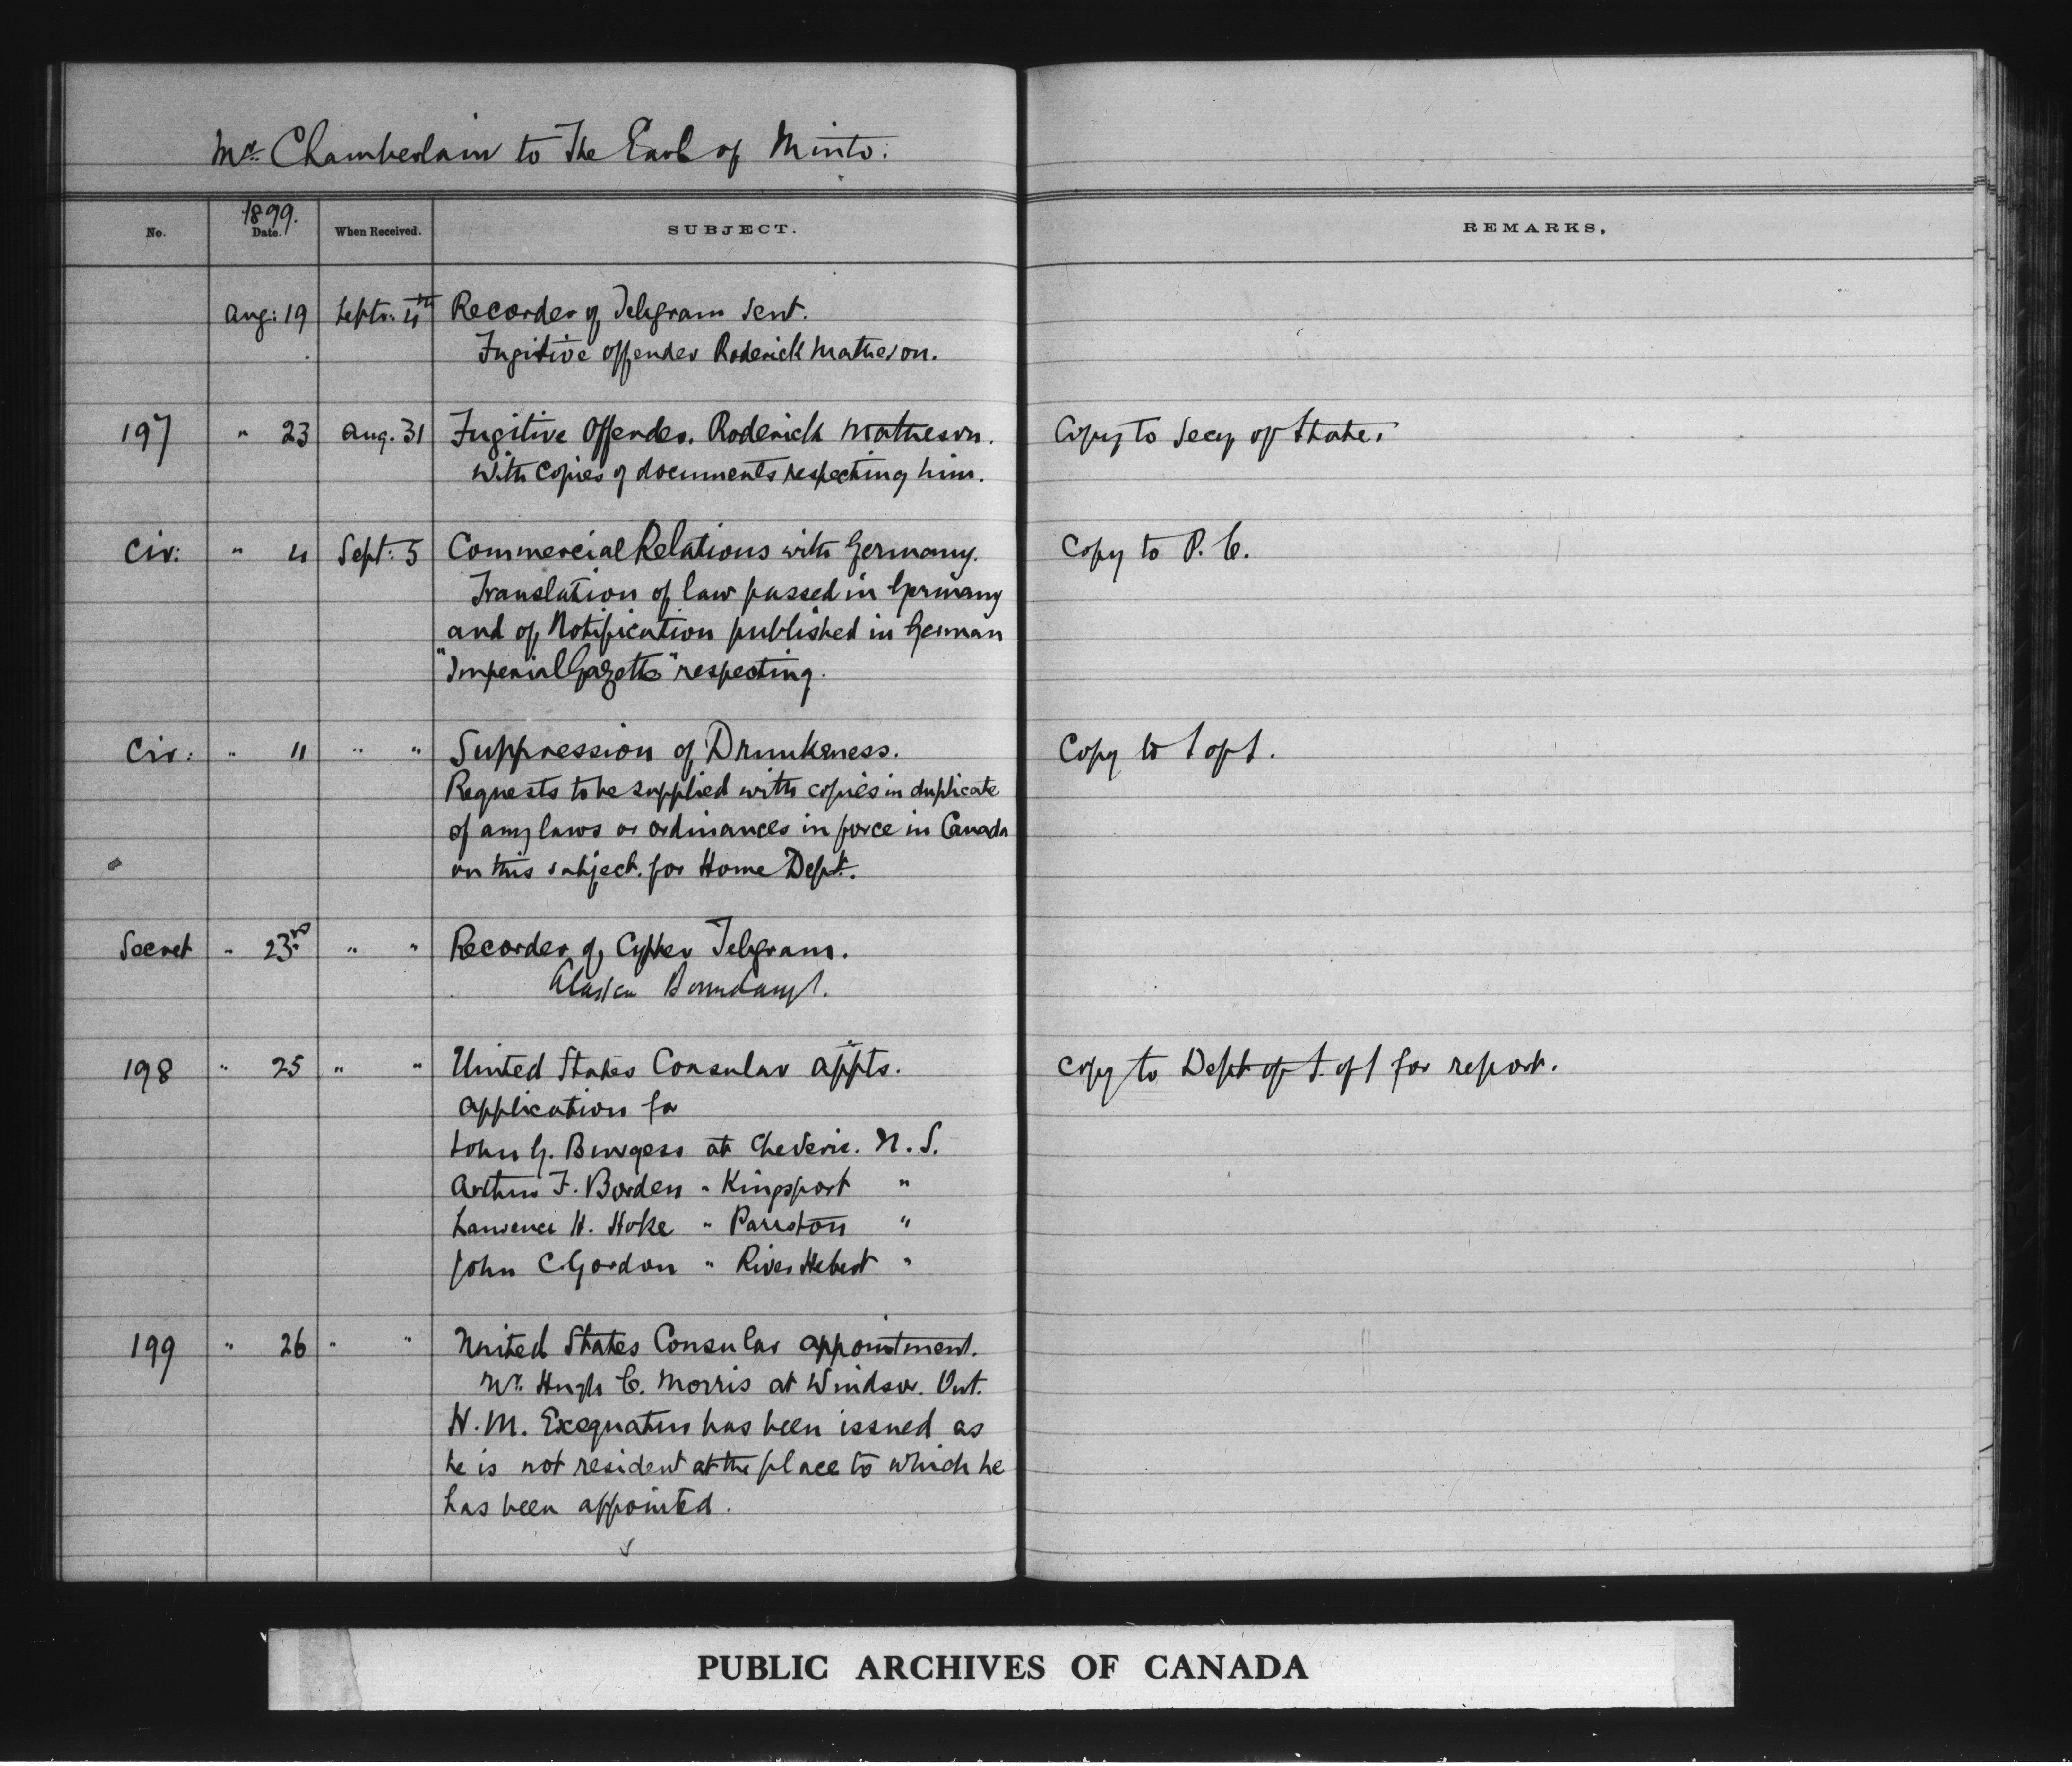 Mr. Chamberlain to The Earl of Minto.
No. 1899. Date. When Received. SUBJECT. REMARKS.
Aug: 19 Septr: 4th Recorder of Telegram sent.
Fugitive offender Roderick Matheson.
197 " 23 Aug. 31 Fugitive Offender. Roderick Matheson. Copy to Secy of State.
With copies of documents respecting him.
Cir: " 4 Sept: 5 Commercial Relations with Germany. Copy to P. C.
Translation of law passed in Germany
and of Notification published in German
"Imperial Gazette" respecting.
Cir: " 11 " " Suppression of Drunkeness. Copy to S of S.
Requests to be supplied with copies in duplicate
of any laws or ordinances in force in Canada
on this subject. for Home Dept.
Secret " 23rd " " Recorder of Cypher Telegram.
Alaska Boundary.
198 " 25 " " United States Consular appts. Copy to Dept of S. of S for report.
Application for
John G. Burgess at Cheverie. N. S.
Arthur F. Borden " Kingsport "
Lawrence H. Hoke " Parrston "
John C Gordon " River Hebert "
199 " 26 " " United States Consular appointment.
Mr. Hugh C. Morris at Windsor. Ont.
H. M. Exequatur has been issued as
he is not resident at the place to which he
has been appointed.
PUBLIC ARCHIVES OF CANADA